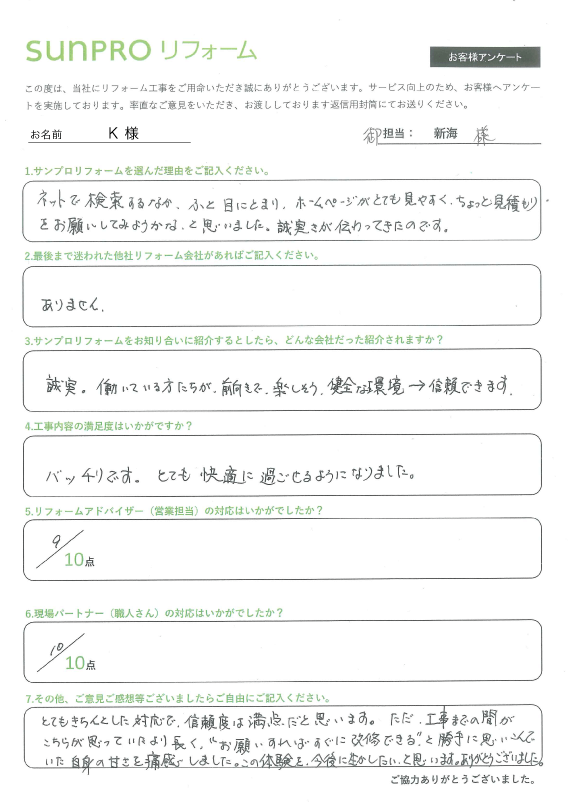 sunPRO リフォーム
お客様アンケート
この度は、当社にリフォーム工事をご用命いただき誠にありがとうございます。サービス向上のため、お客様へアンケー
トを実施しております。率直なご意見をいただき、お渡ししております返信用封筒にてお送りください。
お名前 K 様 御担当: 新海 様
1.サンプロリフォームを選んだ理由をご記入ください。
ネットで検索するなか、ふと目にとまり、ホームページがとても見やすく、ちょっと見積もり
をお願いしてみようかな、と思いました。誠実さが伝わってきたのです。
2.最後まで迷われた他社リフォーム会社があればご記入ください。
ありません。
3.サンプロリフォームをお知り合いに紹介するとしたら、どんな会社だった紹介されますか?
誠実。働いている方たちが、前向きで、楽しそう、健全な環境→信頼できます。
4.工事内容の満足度はいかがですか?
バッチリです。とても快適に過ごせるようになりました。
5.リフォームアドバイザー(営業担当)の対応はいかがでしたか?
9/10点
6.現場パートナー(職人さん)の対応はいかがでしたか?
10/10点
7.その他、ご意見ご感想等ございましたらご自由にご記入ください。
とてもきちんとした対応で、信頼度は満点だと思います。ただ、工事までの間が
こちらが思っていたより長く、"お願いすればすぐに改修できる"と勝手に思いこんで
いた自身の甘さを痛感しました。この体験を、今後に生かしたい、と思います。ありがとうございました。
ご協力ありがとうございました。